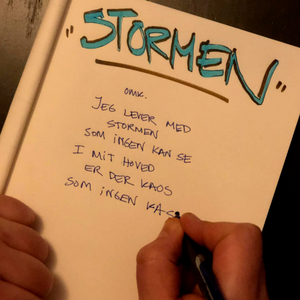 "STORMEN"
OMK.
JEG LEVER MED
STORMEN
SOM INGEN KAN SE
I MIT HOVED
ER DER KAOS
SOM INGEN